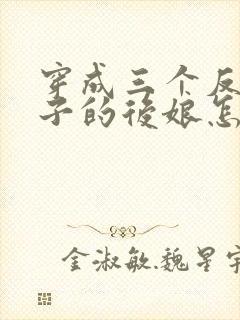 穿成三个反
子的後娘怎
金淑敏.魏星宇